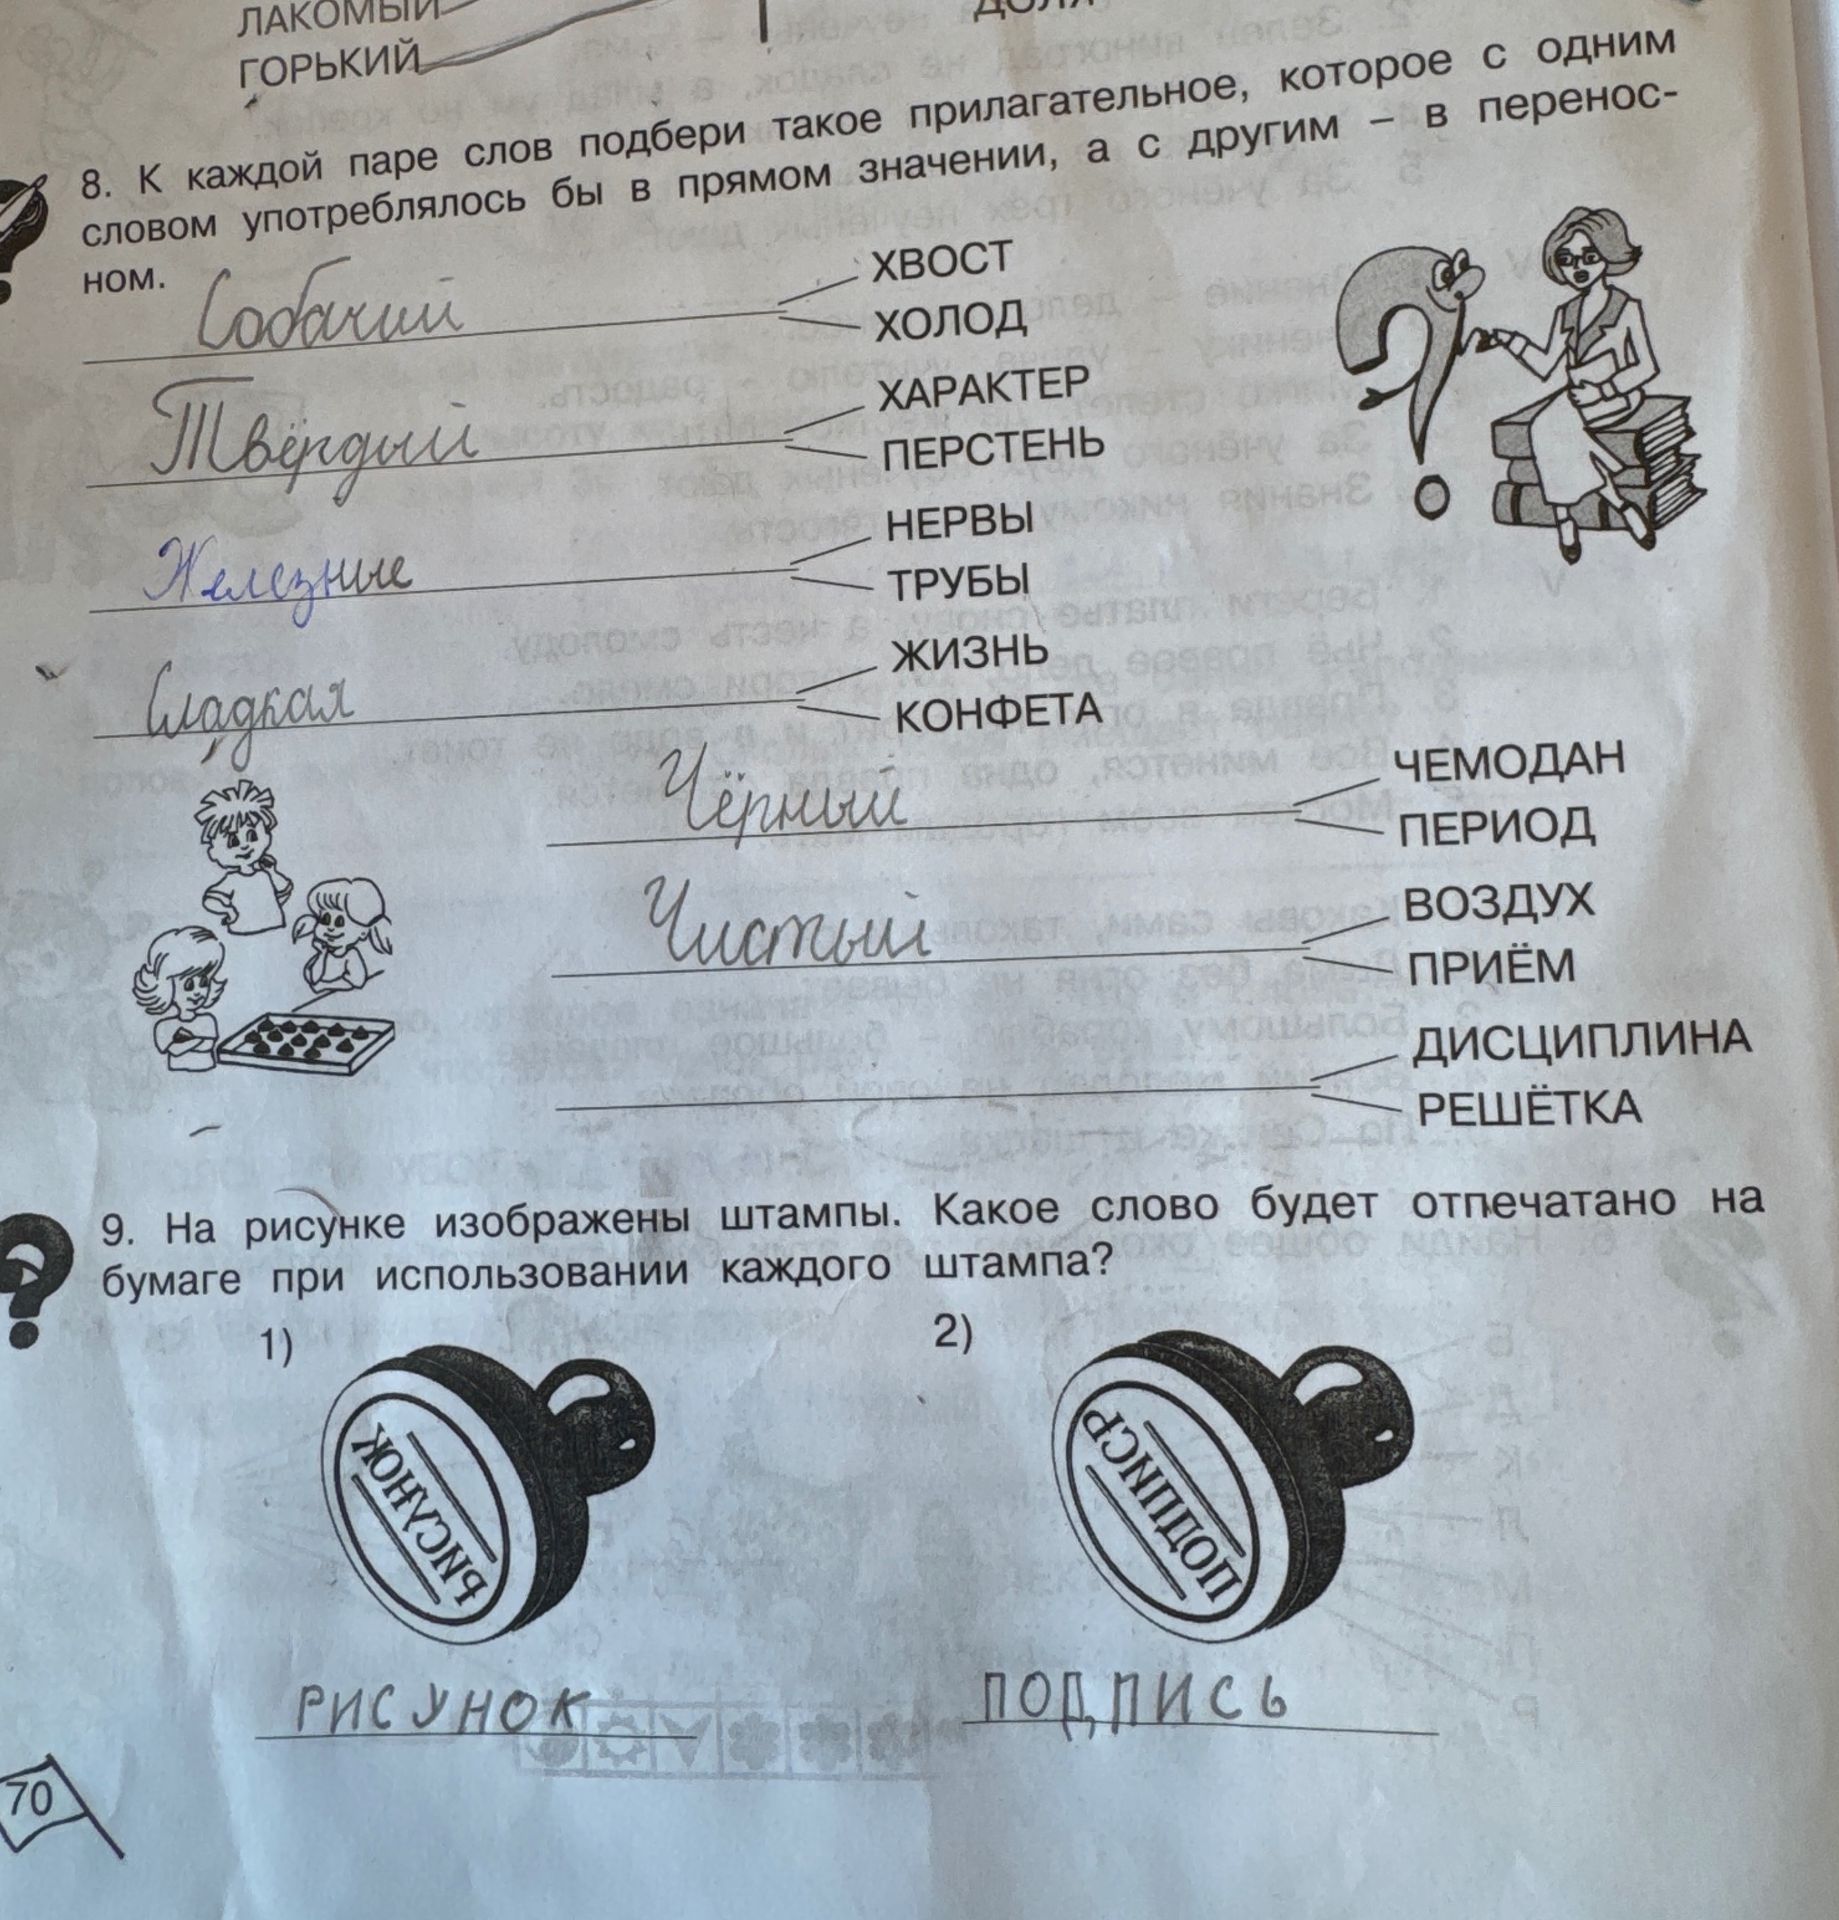 ЛАКОМЫЙ
ГОРЬКИЙ
ДОЛЯ
8. К каждой паре слов подбери такое прилагательное, которое с одним
словом употреблялось бы в прямом значении, а с другим – в перенос-
ном.
Собачий
ХВОСТ
ХОЛОД
Твёрдый
ХАРАКТЕР
ПЕРСТЕНЬ
Железные
НЕРВЫ
ТРУБЫ
Сладкая
ЖИЗНЬ
КОНФЕТА
Чёрный
ЧЕМОДАН
ПЕРИОД
Чистый
ВОЗДУХ
ПРИЁМ
ДИСЦИПЛИНА
РЕШЁТКА
9. На рисунке изображены штампы. Какое слово будет отпечатано на
бумаге при использовании каждого штампа?
1)
2)
РИСУНОК
ПОДПИСЬ
70